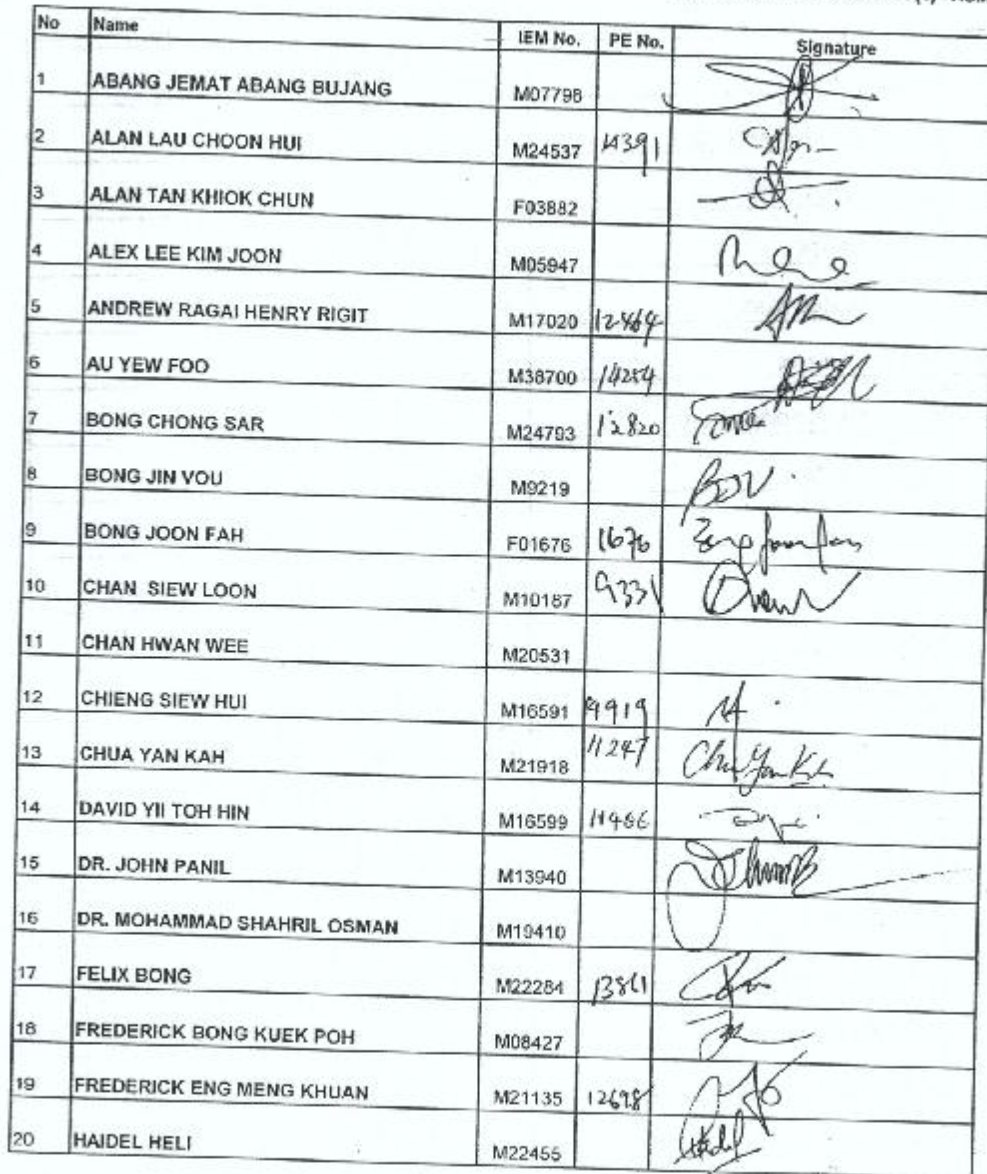 No Name IEM No. PE No. Signature
1 ABANG JEMAT ABANG BUJANG M07798
2 ALAN LAU CHOON HUI M24537 14391
3 ALAN TAN KHIOK CHUN F03882
4 ALEX LEE KIM JOON M05947
5 ANDREW RAGAI HENRY RIGIT M17020 12464
6 AU YEW FOO M38700 14254
7 BONG CHONG SAR M24793 12820
8 BONG JIN VOU M9219 BJV
9 BONG JOON FAH F01676 1676
10 CHAN SIEW LOON M10187 9331
11 CHAN HWAN WEE M20531
12 CHIENG SIEW HUI M16591 9919
13 CHUA YAN KAH M21918 11247 Chua Yan Kah
14 DAVID YII TOH HIN M16599 11466
15 DR. JOHN PANIL M13940
16 DR. MOHAMMAD SHAHRIL OSMAN M19410
17 FELIX BONG M22284 13861
18 FREDERICK BONG KUEK POH M08427
19 FREDERICK ENG MENG KHUAN M21135 12698
20 HAIDEL HELI M22455